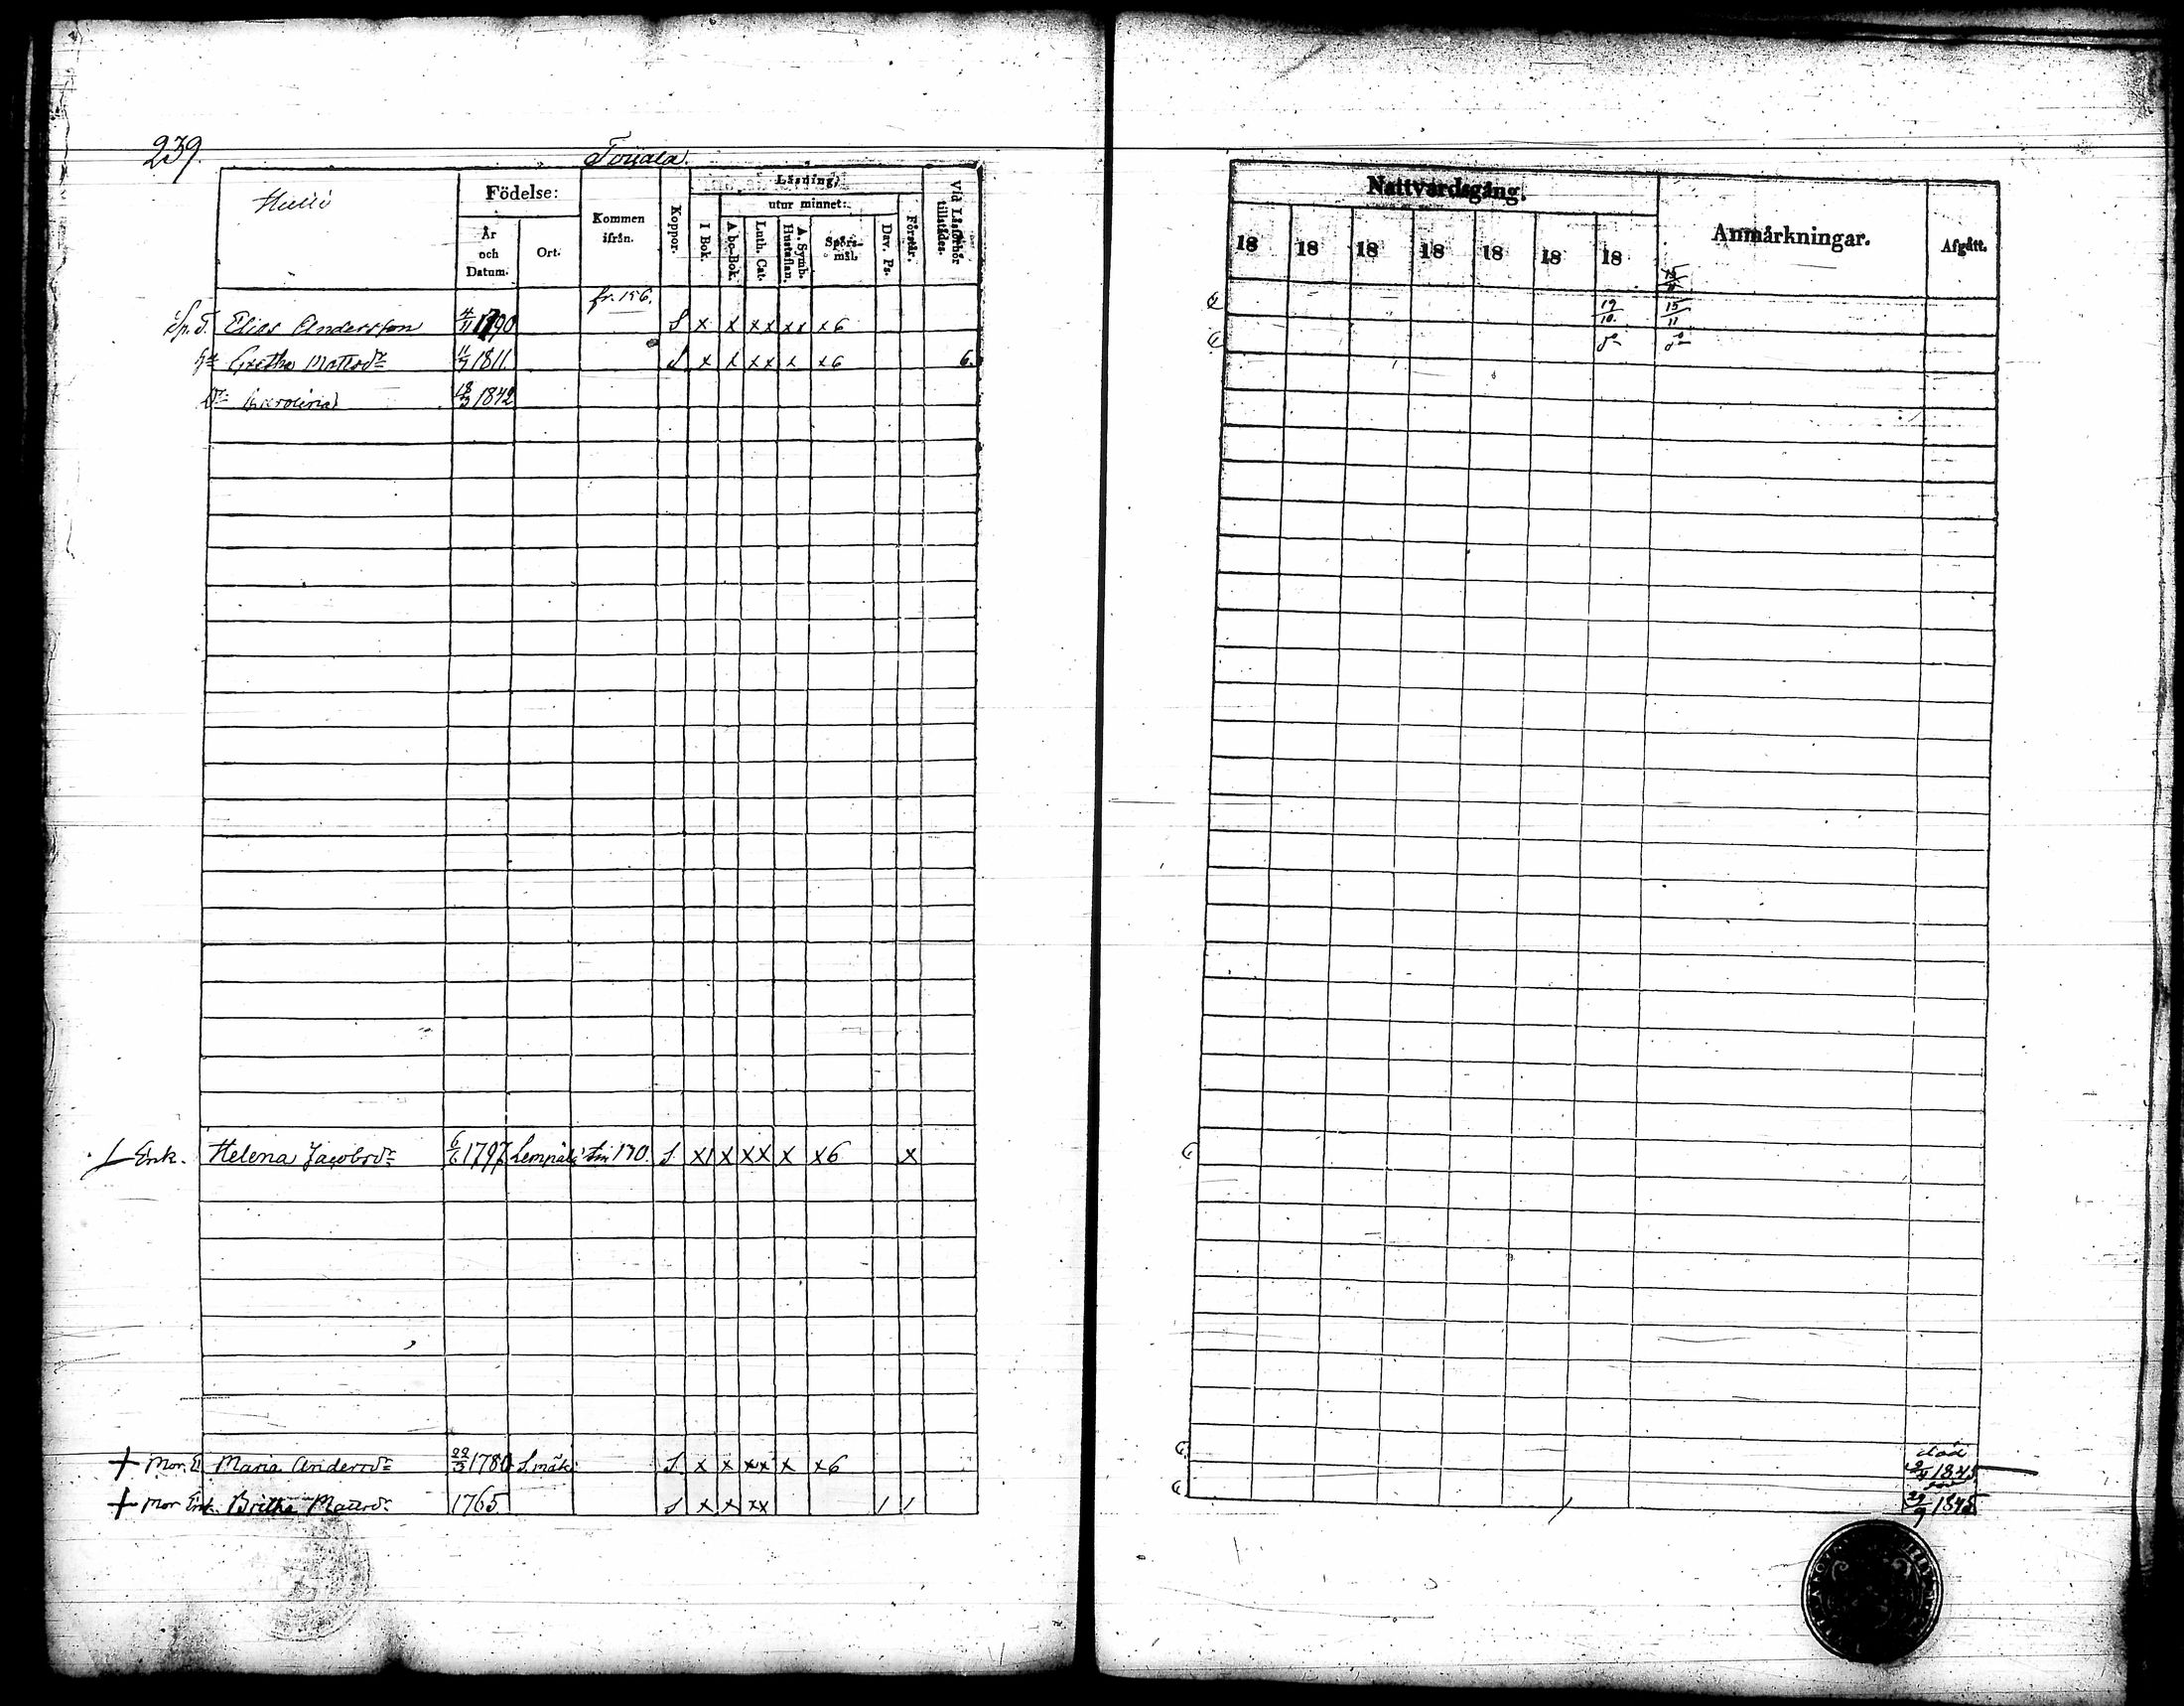 239.
Toijala.
Födelse:
År
och
Datum.
Ort.
Kommen
ifrån.
Koppor.
Läsning,
utur minnet:
I Bok.
A bo-Bok.
Luth. Cat.
A. Symb.
Hustaflan.
Spörs-
mål.
Dav. Ps.
Förstår.
Vid Läsförhör
tillstädes.
fr. 156.
Elias Andersson 4/11 1790 S x x xx xx x6
Gretha Mattsdr 11/7 1811. S x x xx x x6 6.
Dr Carolina 18/3 1842
Enk. Helena Jacobsdr 6/6 1797 Lempälä 170. S. xx x xx x x6 x
Mor. E. Maria Andersdr 22/3 1780 S. x x xx x x6
Mor Enk. Britha Mattsdr 1765. S x x xx / /
Nattvardsgång.
18 18 18 18 18 18 18
Anmärkningar.
Afgått.
19/10 15/11
do do
död
1845
29/9 1845